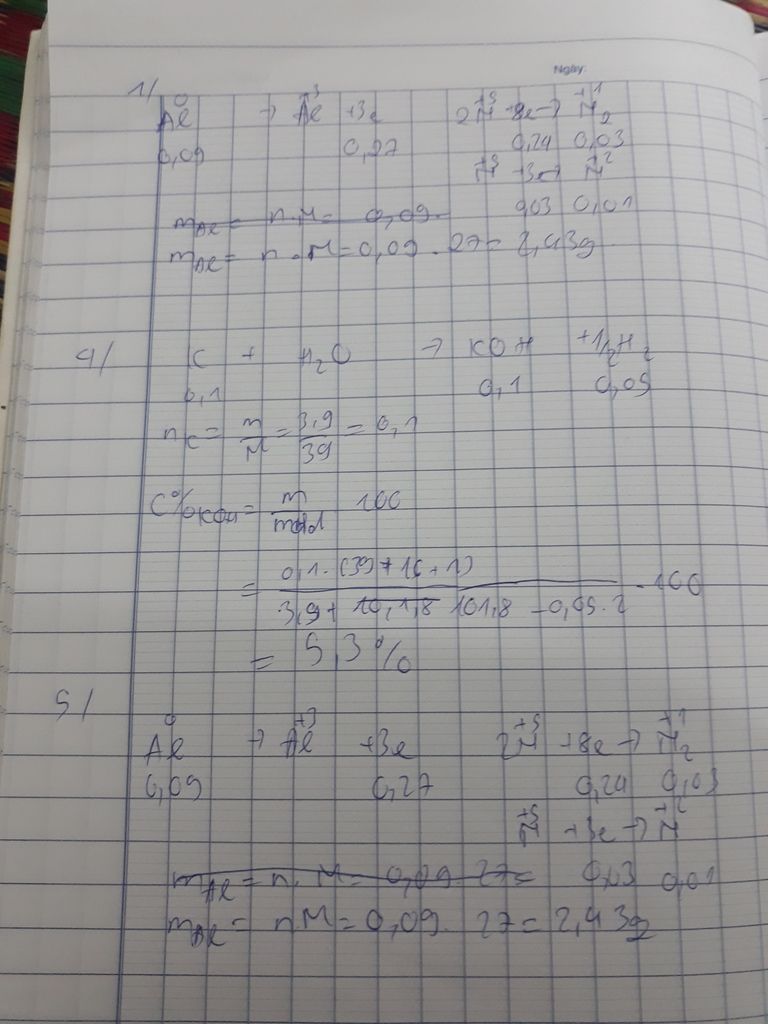 Ngày:
1/
0 +3 +5 +1
Al → Al +3e 2N +8e → N2
0,09 0,27 0,24 0,03
+5 +2
N +3e → N
0,03 0,01
mAl = n.M = 0,09.
mAl = n.M = 0,09 . 27 = 2,43g
4/ K + H2O → KOH +1/2H2
0,1 0,1 0,05
nK = m/M = 3,9/39 = 0,1
C%KOH = m/mdd 100
= 0,1.(39+16+1)/3,9+ 10,1,8 101,8 - 0,05.2 . 100
= 5,3%
5/
0 +3 +5 +1
Al → Al +3e 2N +8e → N2
0,09 0,27 0,24 0,03
+5 +2
N +3e → N
mAl = n.M = 0,09. 27= 0,03 0,01
mAl = n.M = 0,09. 27 = 2,43g